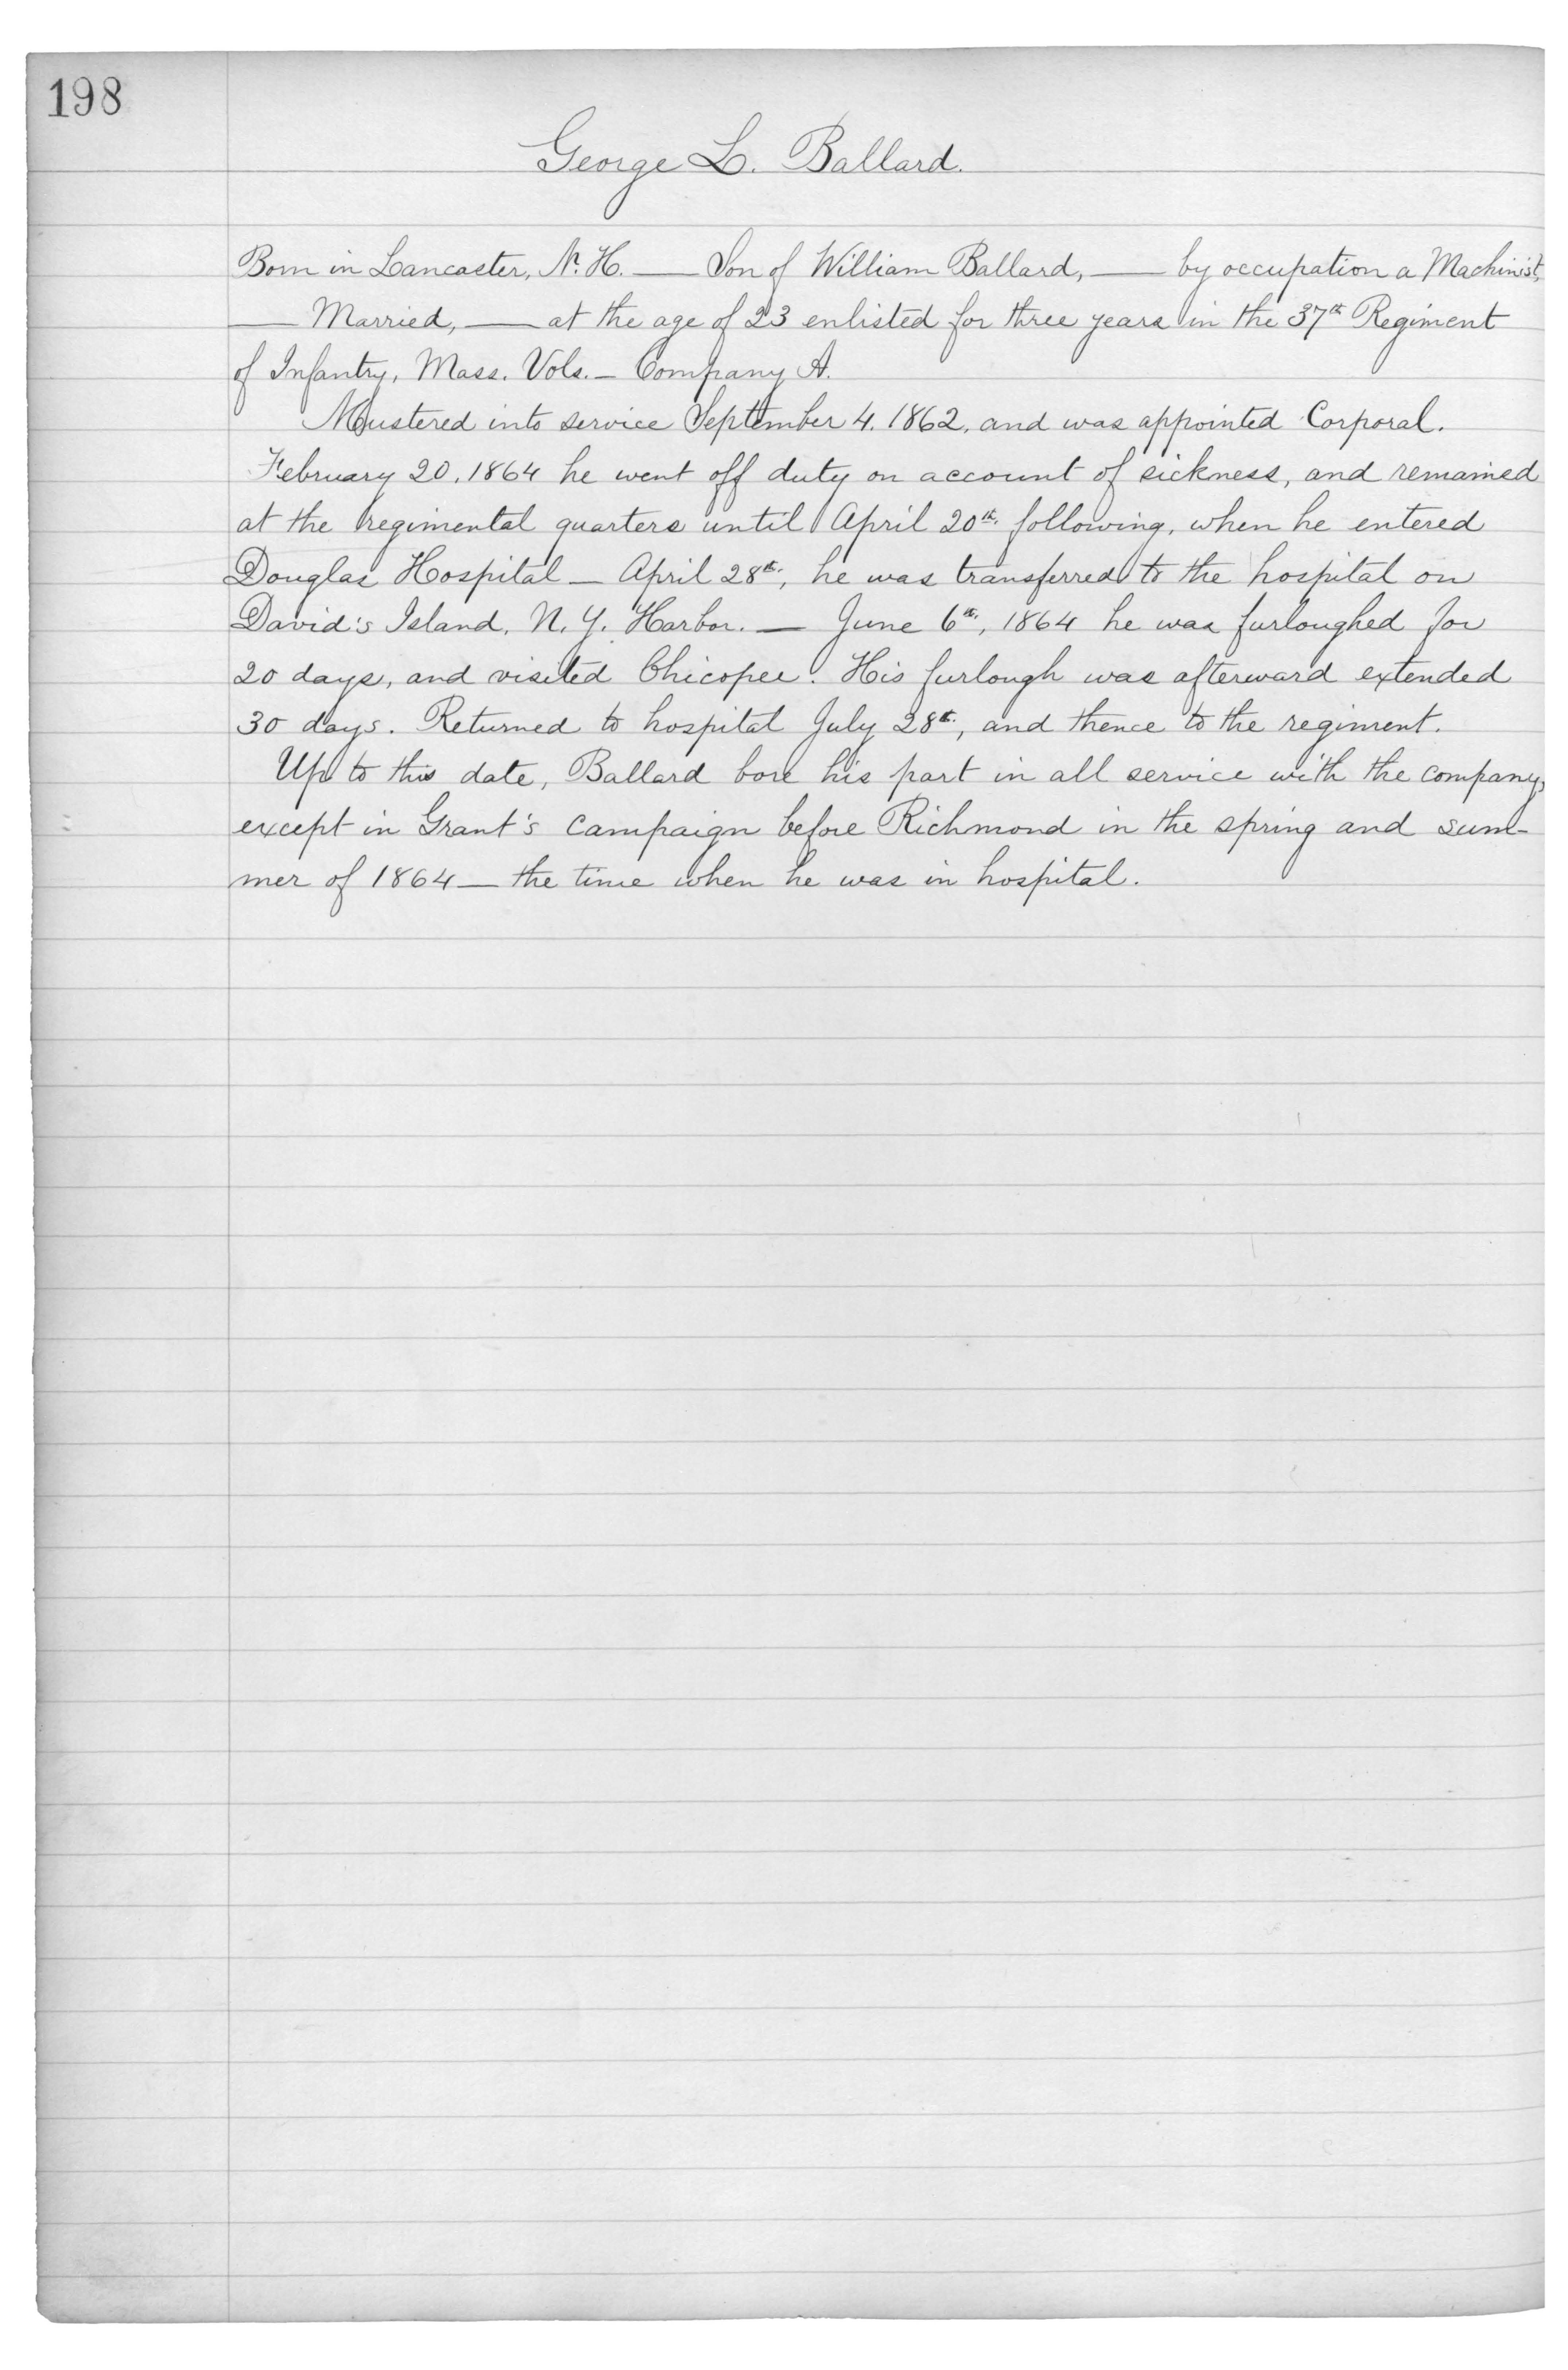 198
George L. Ballard.
Born in Lancaster, N. H. — Son of William Ballard, — by occupation a Machinist,
— Married, — at the age of 23 enlisted for three years in the 37th Regiment
of Infantry, Mass. Vols. — Company A.
Mustered into service September 4. 1862, and was appointed Corporal.
February 20, 1864 he went off duty on account of sickness, and remained
at the regimental quarters until April 20th following, when he entered
Douglas Hospital — April 28th, he was transferred to the hospital on
David's Island, N. Y. Harbor. — June 6th, 1864 he was furloughed for
20 days, and visited Chicopee. His furlough was afterward extended
30 days. Returned to hospital July 28th, and thence to the regiment.
Up to this date, Ballard bore his part in all service with the company,
except in Grant's campaign before Richmond in the spring and sum-
mer of 1864 — the time when he was in hospital.